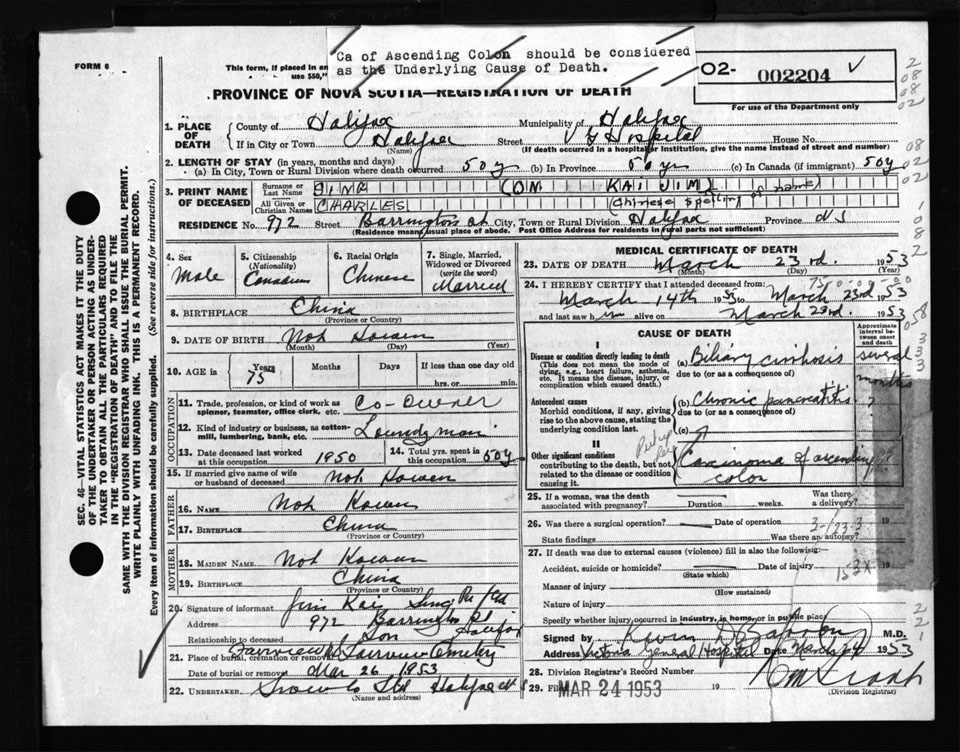 Ca of Ascending Colon should be considered
as the Underlying Cause of Death.
FORM 6
This form, if placed in an
use $50,"
O2- 002204 V
For use of the Department only
PROVINCE OF NOVA SCOTIA—REGISTRATION OF DEATH
1. PLACE OF DEATH
County of Halifax Municipality of Halifax
If in City or Town Halifax Street V G Hospital House No.
(Name) (If death occurred in a hospital or institution, give the name instead of street and number)
2. LENGTH OF STAY (in years, months and days)
(a) In City, Town or Rural Division where death occurred 50 y (b) In Province 50 yrs (c) In Canada (if immigrant) 50y
3. PRINT NAME OF DECEASED
Surname or Last Name JIM (ON KAI JIM
All Given or Christian Names CHARLES (Chinese spelling of name)
RESIDENCE No. 972 Street Barrington St City, Town or Rural Division Halifax Province NS
(Residence means usual place of abode. Post Office Address for residents in rural parts not sufficient)
4. Sex
Male
5. Citizenship
(Nationality)
Canadian
6. Racial Origin
Chinese
7. Single, Married,
Widowed or Divorced
(write the word)
Married
8. BIRTHPLACE China
(Province or Country)
9. DATE OF BIRTH Not Known
(Month) (Day) (Year)
10. AGE in Years Months Days If less than one day
75 hrs. or min.
OCCUPATION
11. Trade, profession, or kind of work as
spinner, teamster, office clerk, etc. Co-Owner
12. Kind of industry or business, as cotton-
mill, lumbering, bank, etc. Laundryman
13. Date deceased last worked
at this occupation 1950
14. Total yrs. spent in
this occupation 50y
15. If married give name of wife
or husband of deceased Not Known
FATHER
16. NAME Not Known
17. BIRTHPLACE China
(Province or Country)
MOTHER
18. MAIDEN NAME Not Known
19. BIRTHPLACE China
(Province or Country)
20. Signature of informant
Address 972 Barrington St
Halifax
Relationship to deceased Son
21. Place of burial, cremation or removal Fairview Cemetery
Date of burial or removal Mar 26 1953
22. UNDERTAKER Snow Co Ltd Halifax
SEC. 46—VITAL STATISTICS ACT MAKES IT THE DUTY
OF THE UNDERTAKER OR PERSON ACTING AS UNDER-
TAKER TO OBTAIN ALL THE PARTICULARS REQUIRED
IN THE "REGISTRATION OF DEATH" AND TO FILE THE
SAME WITH THE DIVISION REGISTRAR WHO SHALL ISSUE THE BURIAL PERMIT.
WRITE PLAINLY WITH UNFADING INK. THIS IS A PERMANENT RECORD.
Every item of information should be carefully supplied. (See reverse side for instructions.)
MEDICAL CERTIFICATE OF DEATH
23. DATE OF DEATH March 23rd. 1953
(Month) (Day) (Year)
24. I HEREBY CERTIFY that I attended deceased from:
March 14th 1953 to March 23rd 1953
and last saw him alive on March 23rd. 1953
CAUSE OF DEATH
Approximate
interval be-
tween onset
and death
I
Disease or condition directly leading to death
(This does not mean the mode of
dying, e.g., heart failure, asthenia,
etc. It means the disease, injury, or
complication which caused death.)
(a) Biliary cirrhosis several
due to (or as a consequence of) months
Antecedent causes
Morbid conditions, if any, giving
rise to the above cause, stating the
underlying condition last.
(b) Chronic pancreatitis ?
due to (or as a consequence of)
(c)
II
Other significant conditions
contributing to the death, but not
related to the disease or condition
causing it.
Carcinoma of ascending
colon
25. If a woman, was the death
associated with pregnancy? Duration weeks.
Was there
a delivery?
26. Was there a surgical operation? Date of operation 19
State findings Was there an autopsy?
27. If death was due to external causes (violence) fill in also the following:
Accident, suicide or homicide? Date of injury 19
(State which)
Manner of injury
(How sustained)
Nature of injury
Specify whether injury occurred in industry, in home, or in public place
Signed by M.D.
Address Victoria General Hospital Date March 1953
28. Division Registrar's Record Number
29. Filed MAR 24 1953 19
(Division Registrar)